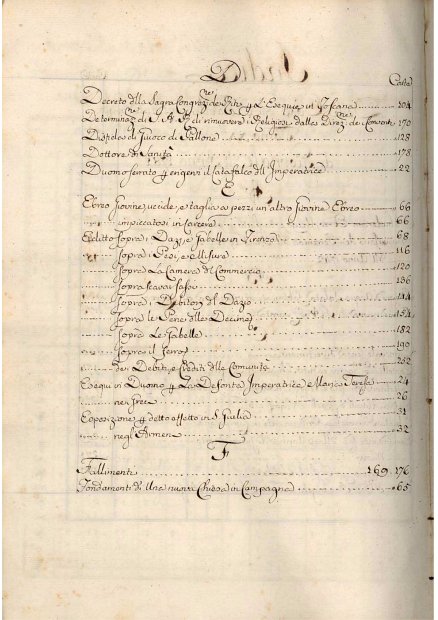 D
Carte
Decreto della Sagra Congreg.ne de Riti p l'Esequie in Toscana 104
Determinaz.ne di S.A.R. di rimuovere i Religiosi dalla Direz.ne de Conventi 170
Disfida di Giuoco di Pallone 128
Dottore di Sanità 178
Duomo serrato p ergervi il Catafalco dell Imperatrice 22
E
Ebreo giovine uccide, e taglia a pezzi un'altro giovine Ebreo 66
impiccatosi in Carcere 66
Editto sopra i Dazi, e Gabelle in Firenze 68
sopra i Pesi, e Misure 116
sopra La Camera di Commercio 120
sopra scavar sassi 136
sopra i Debitori del Dazio 144
sopra le Pene delle Decime 154
sopra Le Gabelle 182
sopra il ferro 190
dei Debiti, e Crediti delle Comunità 252
Esequie in Duomo p La Defonta Imperatrice Maria Teresa 24
nei Greci 26
Esposizione p detto effetto in S. Giulia 31
negl'Armeni 32
F
Fallimenti 169. 176
Fondamenti di Una nuova Chiesa in Campagna 65